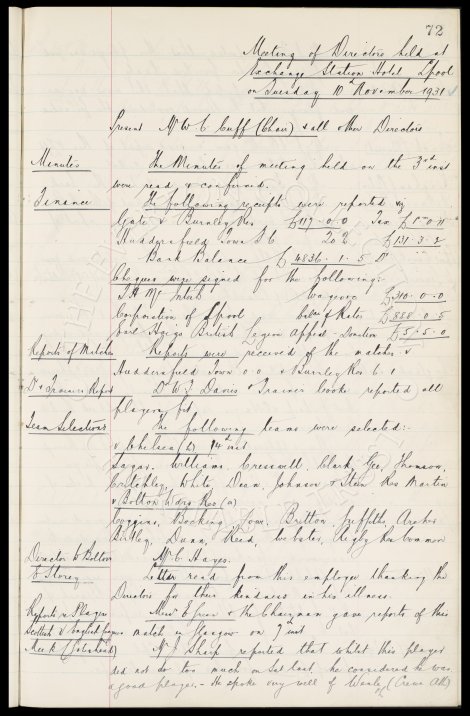 72
Meeting of Directors held at
Exchange Station Hotel L'pool
on Tuesday 10th November 1931
Present Mr W. C. Cuff (Chair) & all other Directors
Minutes The Minutes of meeting held on the 3rd inst
were read & confirmed.
Finance The following receipts were reported viz
Gate v Burnley Res £117.0.0 Tax
Huddersfield Town F C £131.3.2
Bank Balance £4836.1.5 Dr
Cheques were signed for the following:
Wages £310.0.0
Corporation of L'pool & Rates £888.0.5
Earl Haigs British Legion Appeal - Donation £5.5.0
Reports of Matches Reports were received of the matches v
Huddersfield Town 0.0 & Burnley Res 6.1
Dr & Trainer Report Dr W J Davies & Trainer Cooke reported all
players fit
Team Selections The following teams were selected:-
v Chelsea (h) 14th inst
Sagar. Williams. Cresswell. Clark. Gee. Thomson.
Critchley. White. Dean. Johnson & Stein. Res Martin
v Bolton Wdrs Res (a)
Coggins. Bocking. Lowe. Britton. Griffiths. Archer
Dunn. Reid. Webster. Rigby Res Common
Director to Bolton Mr C. Hayes.
E Storey Letter read from this employee thanking the
Directors for their kindness in his illness.
Reports re Players Mr E Green & the Chairman gave reports of this
Scottish v English match in Glasgow on 7th inst
Meek (Gateshead) Mr J Sharp reported that whilst this player
did not do too much on Sat last, he considered he was
a good player. - He spoke very well of (Crewe Alex)